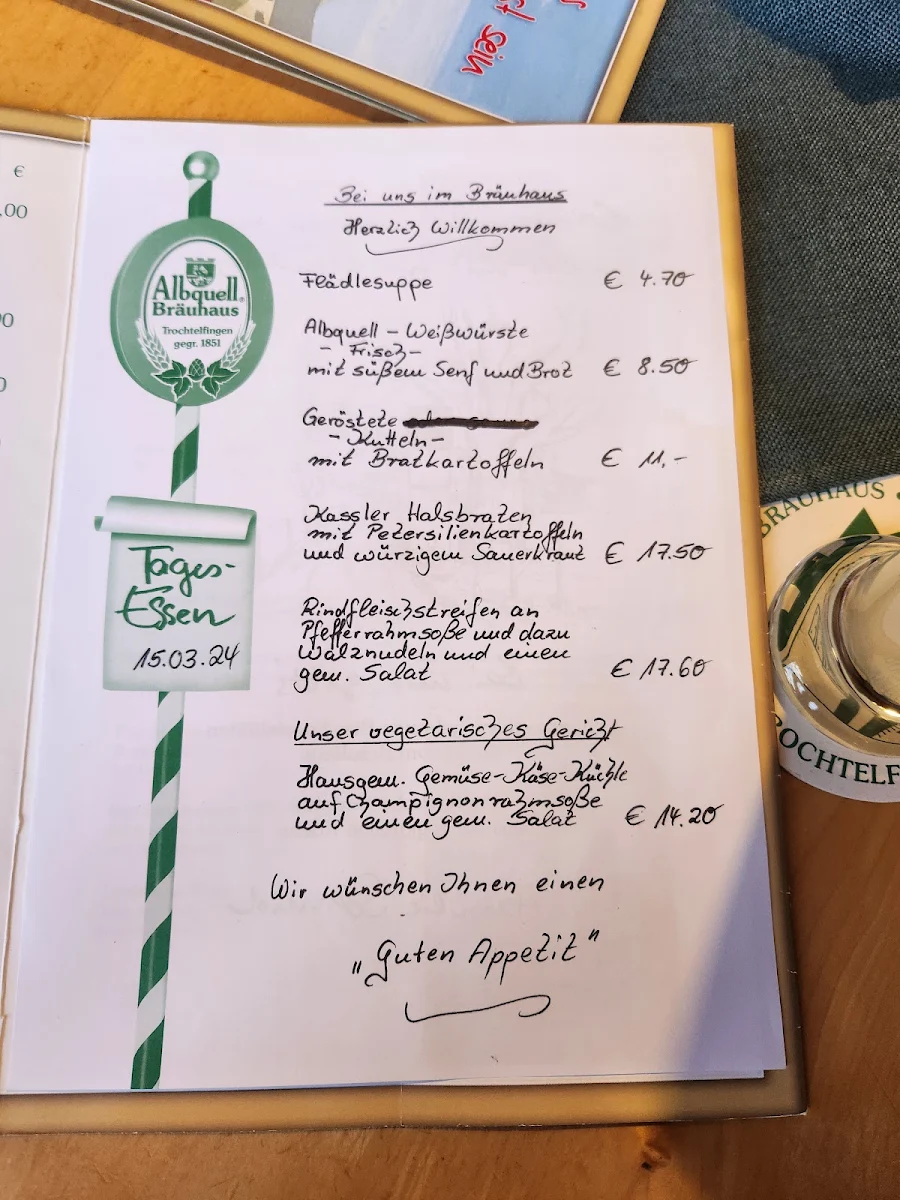 st sein
€
,00
00
0
Albquell®
Bräuhaus
Trochtelfingen
gegr. 1851
Tages-
Essen
15.03.24
Bei uns im Bräuhaus
Herzlich Willkommen
Flädlesuppe € 4.70
Albquell - Weißwürste
- Frisch -
mit süßem Senf und Brot € 8.50
Geröstete
- Kutteln -
mit Bratkartoffeln € 11,-
Kassler Halsbraten
mit Petersilienkartoffeln
und würzigem Sauerkraut € 17.50
Rindfleischstreifen an
Pfefferrahmsoße und dazu
Walznudeln und einen
gem. Salat € 17.60
Unser vegetarisches Gericht
Hausgem. Gemüse-Käse-Küchle
auf Champignonrahmsoße
und einen gem. Salat € 14.20
Wir wünschen Ihnen einen
„Guten Appetit"
BRÄUHAUS
ROCHTELF